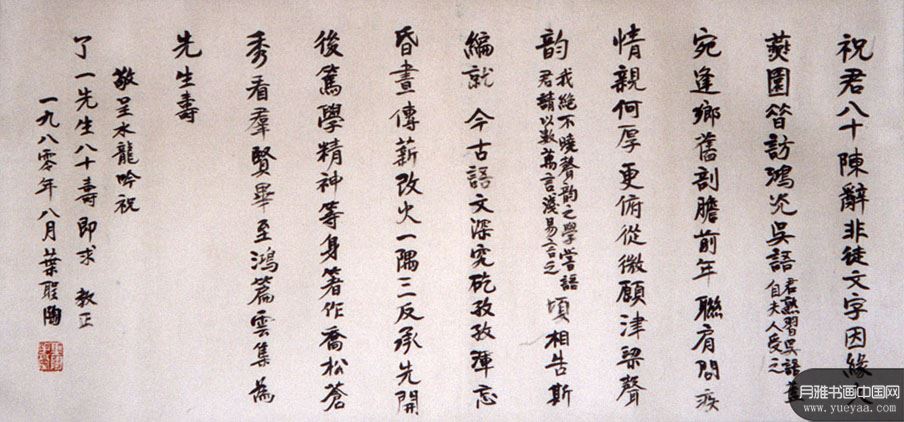 祝君八十陳辭非徒文字因緣久
燕園曾訪鴻光吳語
君熟習吳語蓋
自夫人受之
宛逢鄉舊剖膽前年聯肩問疾
情親何厚更俯從微願津梁聲
韵
我絕不曉聲韵之學嘗語
君請以數萬言淺易言之
頃相告斯
編就 今古語文深究矻孜孜渾忘
昏晝傳薪改火一隅三反承先開
後篤學精神等身著作喬松蒼
秀看羣賢畢至鴻篇雲集為
先生壽
敬呈水龍吟祝
了一先生八十壽即求 教正
一九八零年八月葉聖陶
月雅书画中国网
www.yueyaa.com